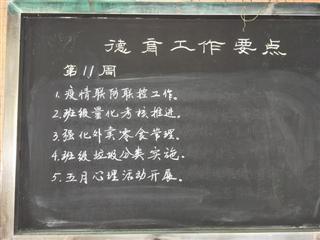 德育工作要点
第11周
1.疫情联防联控工作。
2.班级量化考核推进。
3.强化外卖零食管理。
4.班级垃圾分类实施。
5.五月心理活动开展。